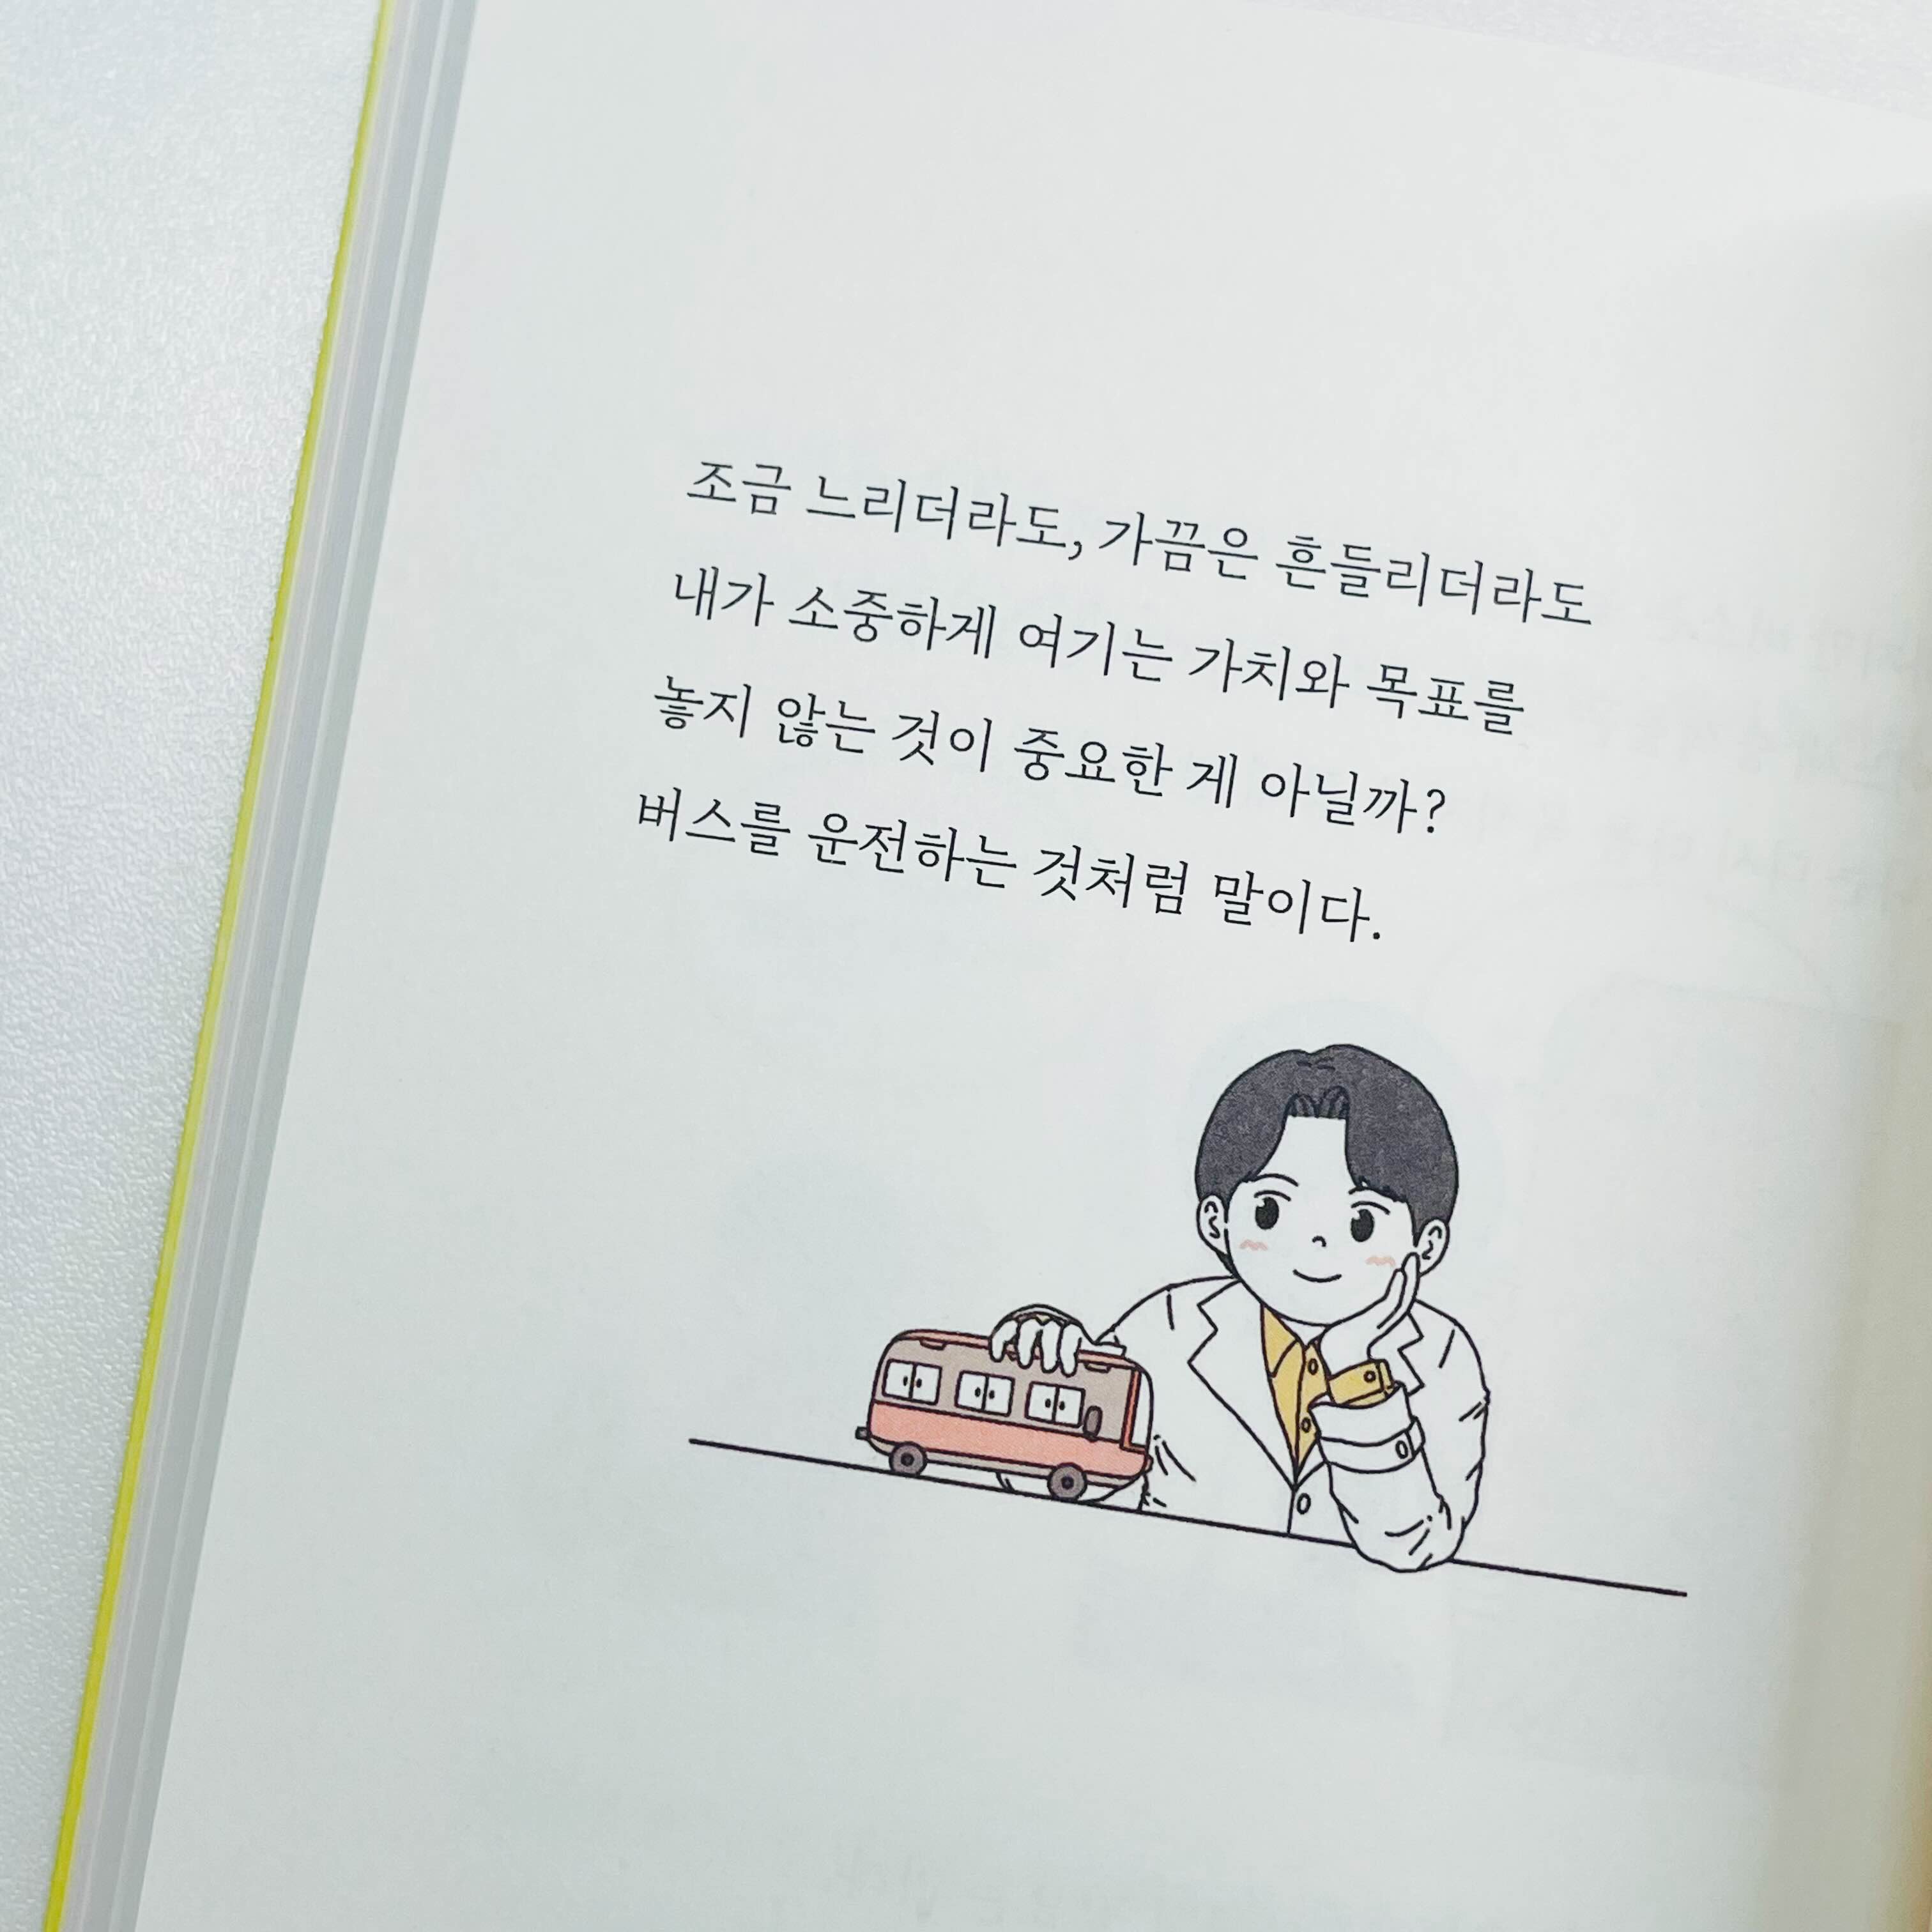 조금 느리더라도, 가끔은 흔들리더라도
내가 소중하게 여기는 가치와 목표를
놓지 않는 것이 중요한 게 아닐까?
버스를 운전하는 것처럼 말이다.